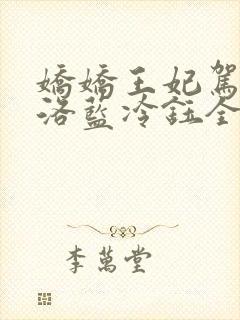 嬌嬌王妃駕
洛藍冷鈺全
李萬堂